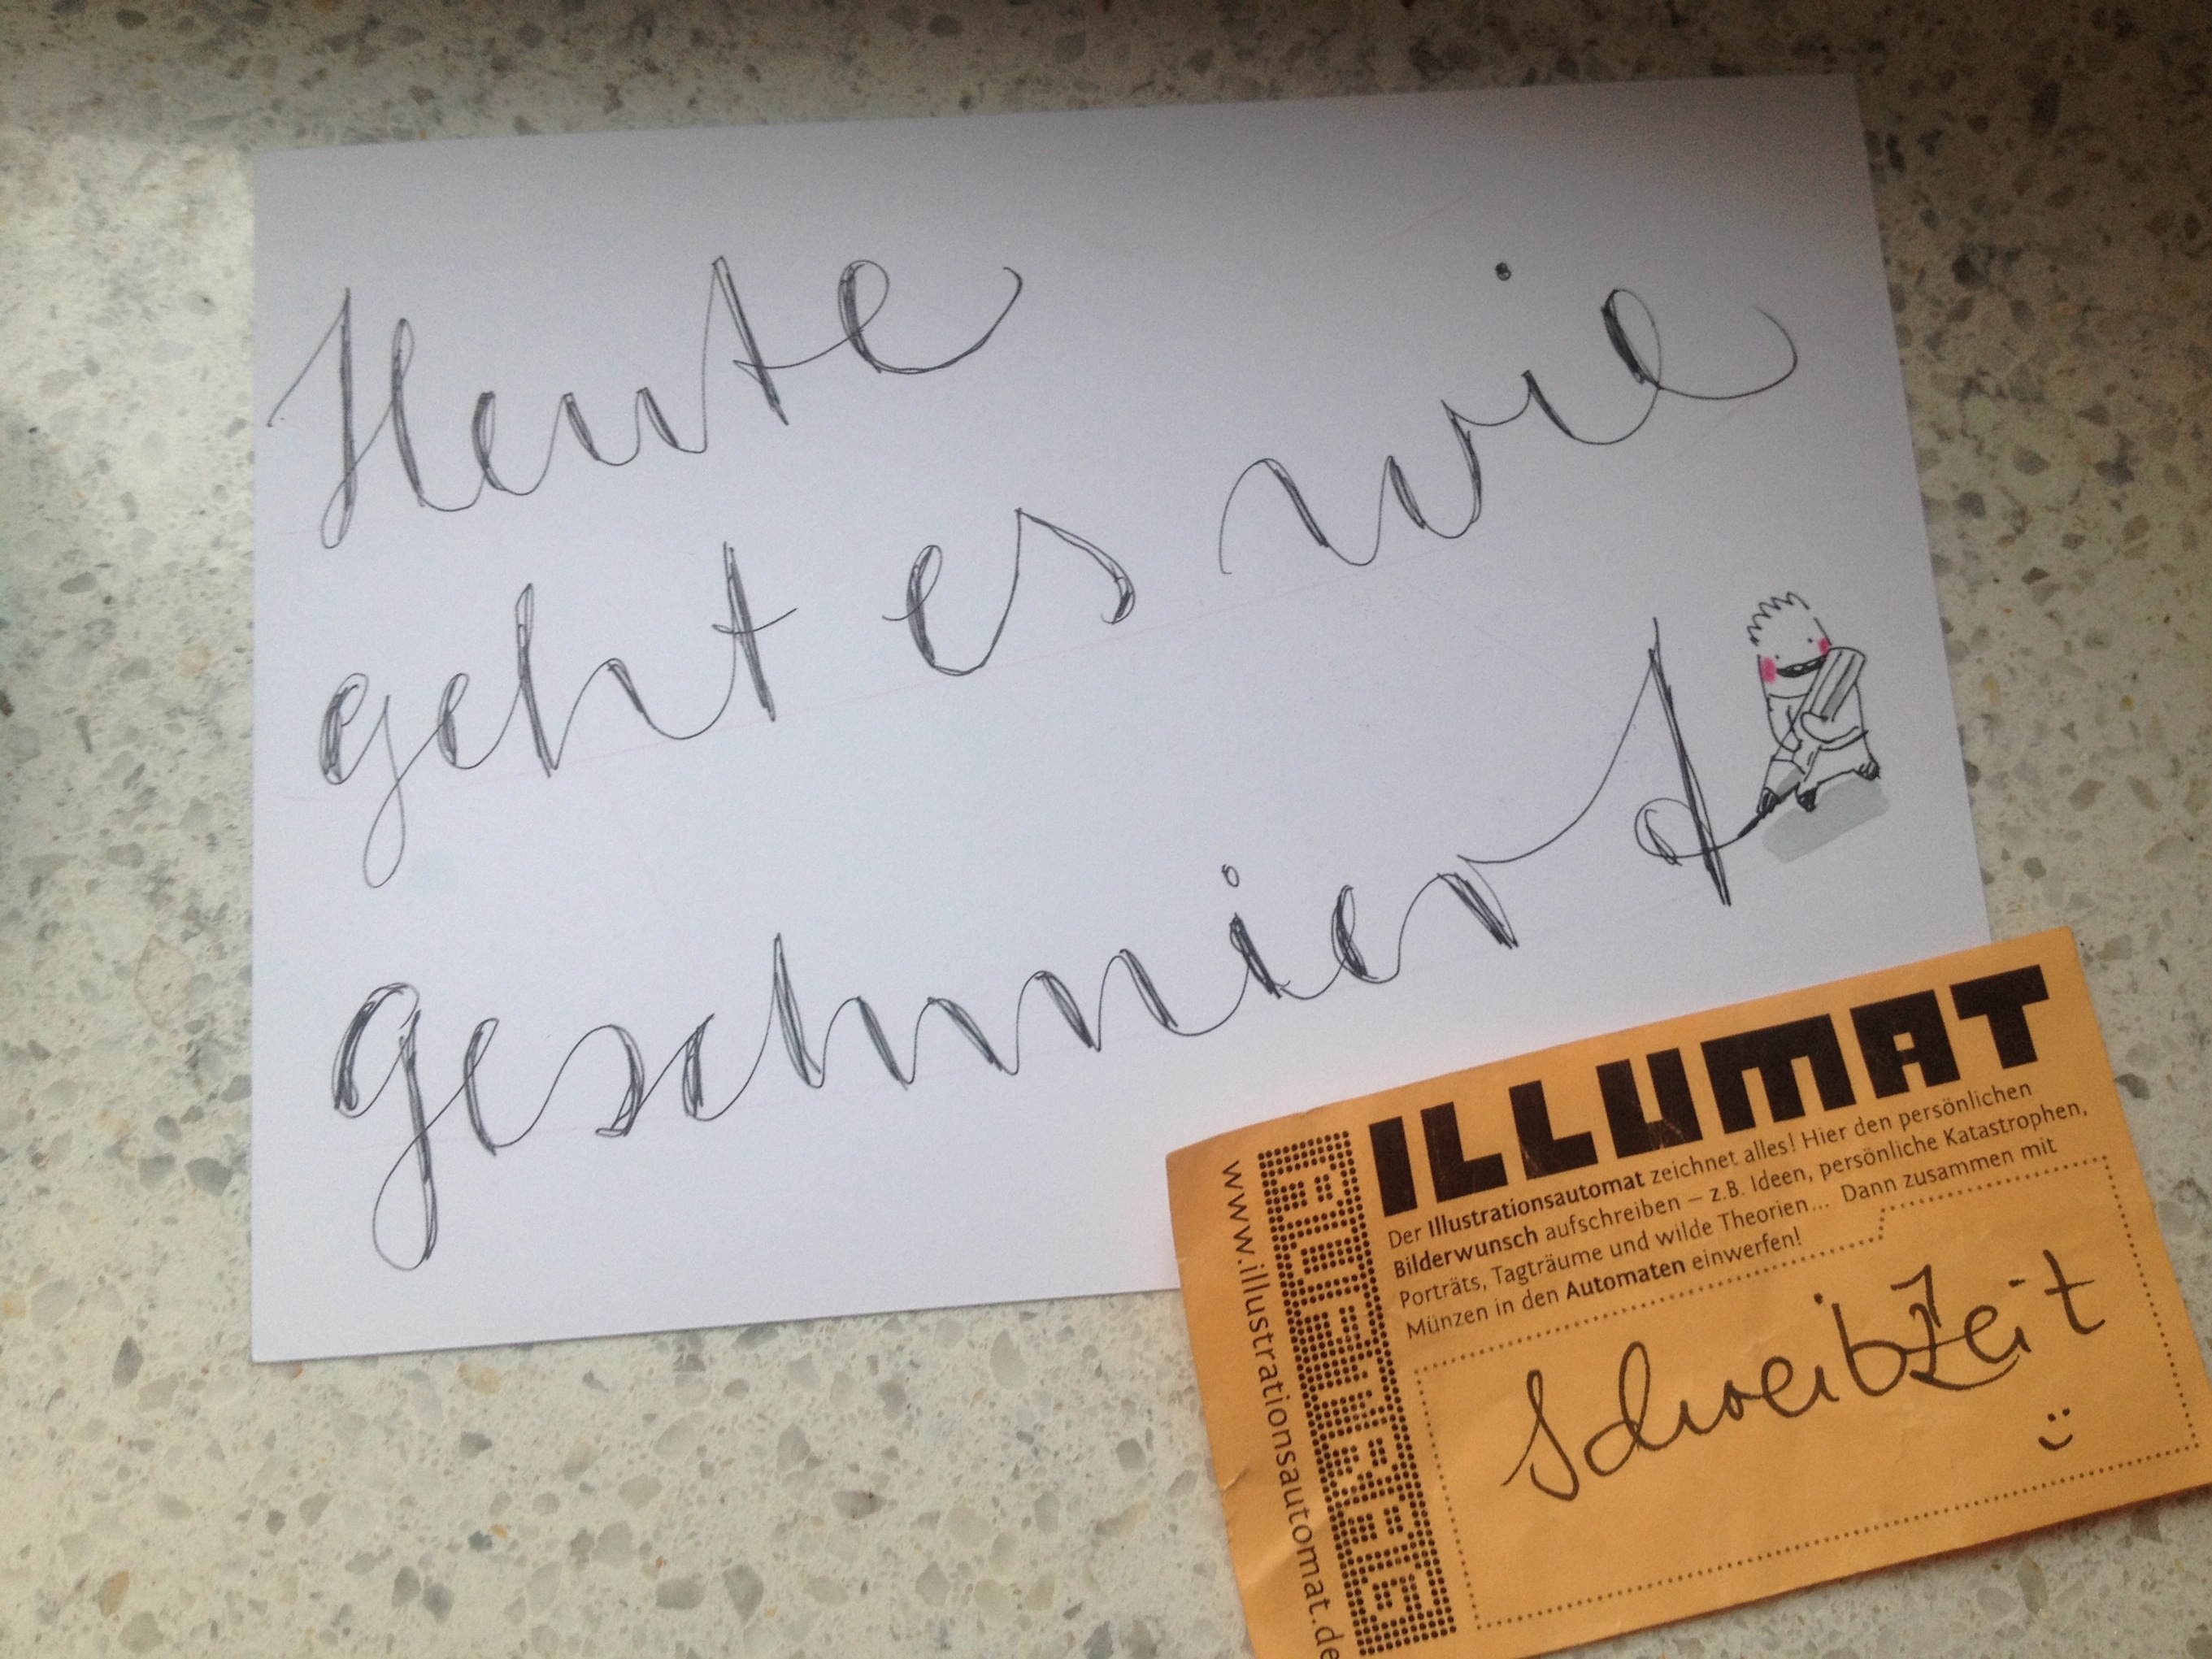 Heute
geht es wie
geschmiert
ILLUMAT
Der Illustrationsautomat zeichnet alles! Hier den persönlichen
Bilderwunsch aufschreiben – z.B. Ideen, persönliche Katastrophen,
Porträts, Tagträume und wilde Theorien... Dann zusammen mit
Münzen in den Automaten einwerfen!
SchreibZeit
www.illustrationsautomat.de